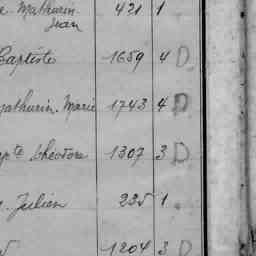 Mathurin 421 1
Jean
Baptiste 1659 4 D
Mathurin Marie 1743 4 D
pte théodore 1307 3 D
Julien 235 1
1204 3 D